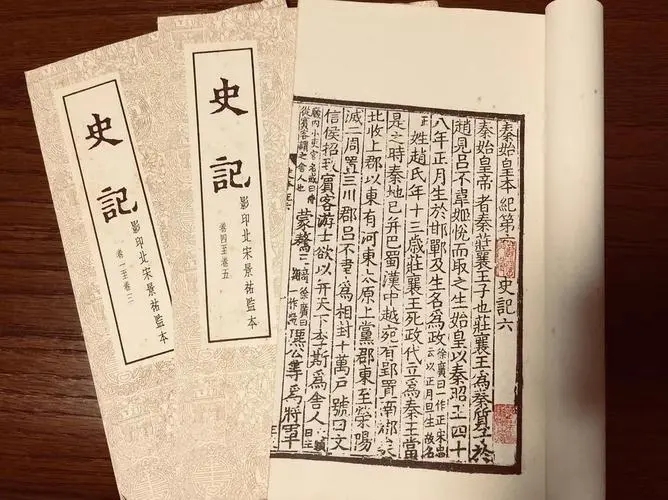 史記
影印北宋景祐監本
卷一至卷三
史記
影印北宋景祐監本
卷四至卷五
秦始皇本紀第六 史記六
秦始皇帝者秦莊襄王子也莊襄王爲秦質子於
趙見吕不韋姬恱而取之生始皇以秦昭王四十
八年正月生於邯鄲及生名爲政徐廣曰一作正宋忠云以正月旦生故名
姓趙氏年十三歳莊襄王死政代立爲秦王當
是之時秦地已并巴蜀漢中越宛有郢置南郡
北收上郡以東有河東太原上黨郡東至滎陽
滅二周置三川郡吕不韋爲相封十萬户號曰文
信侯招致賓客游士欲以并天下李斯爲舍人
廐内小吏官名或曰侍從賓客謂之舍人也蒙驁王齮徐廣曰一作齕麃公等爲將軍